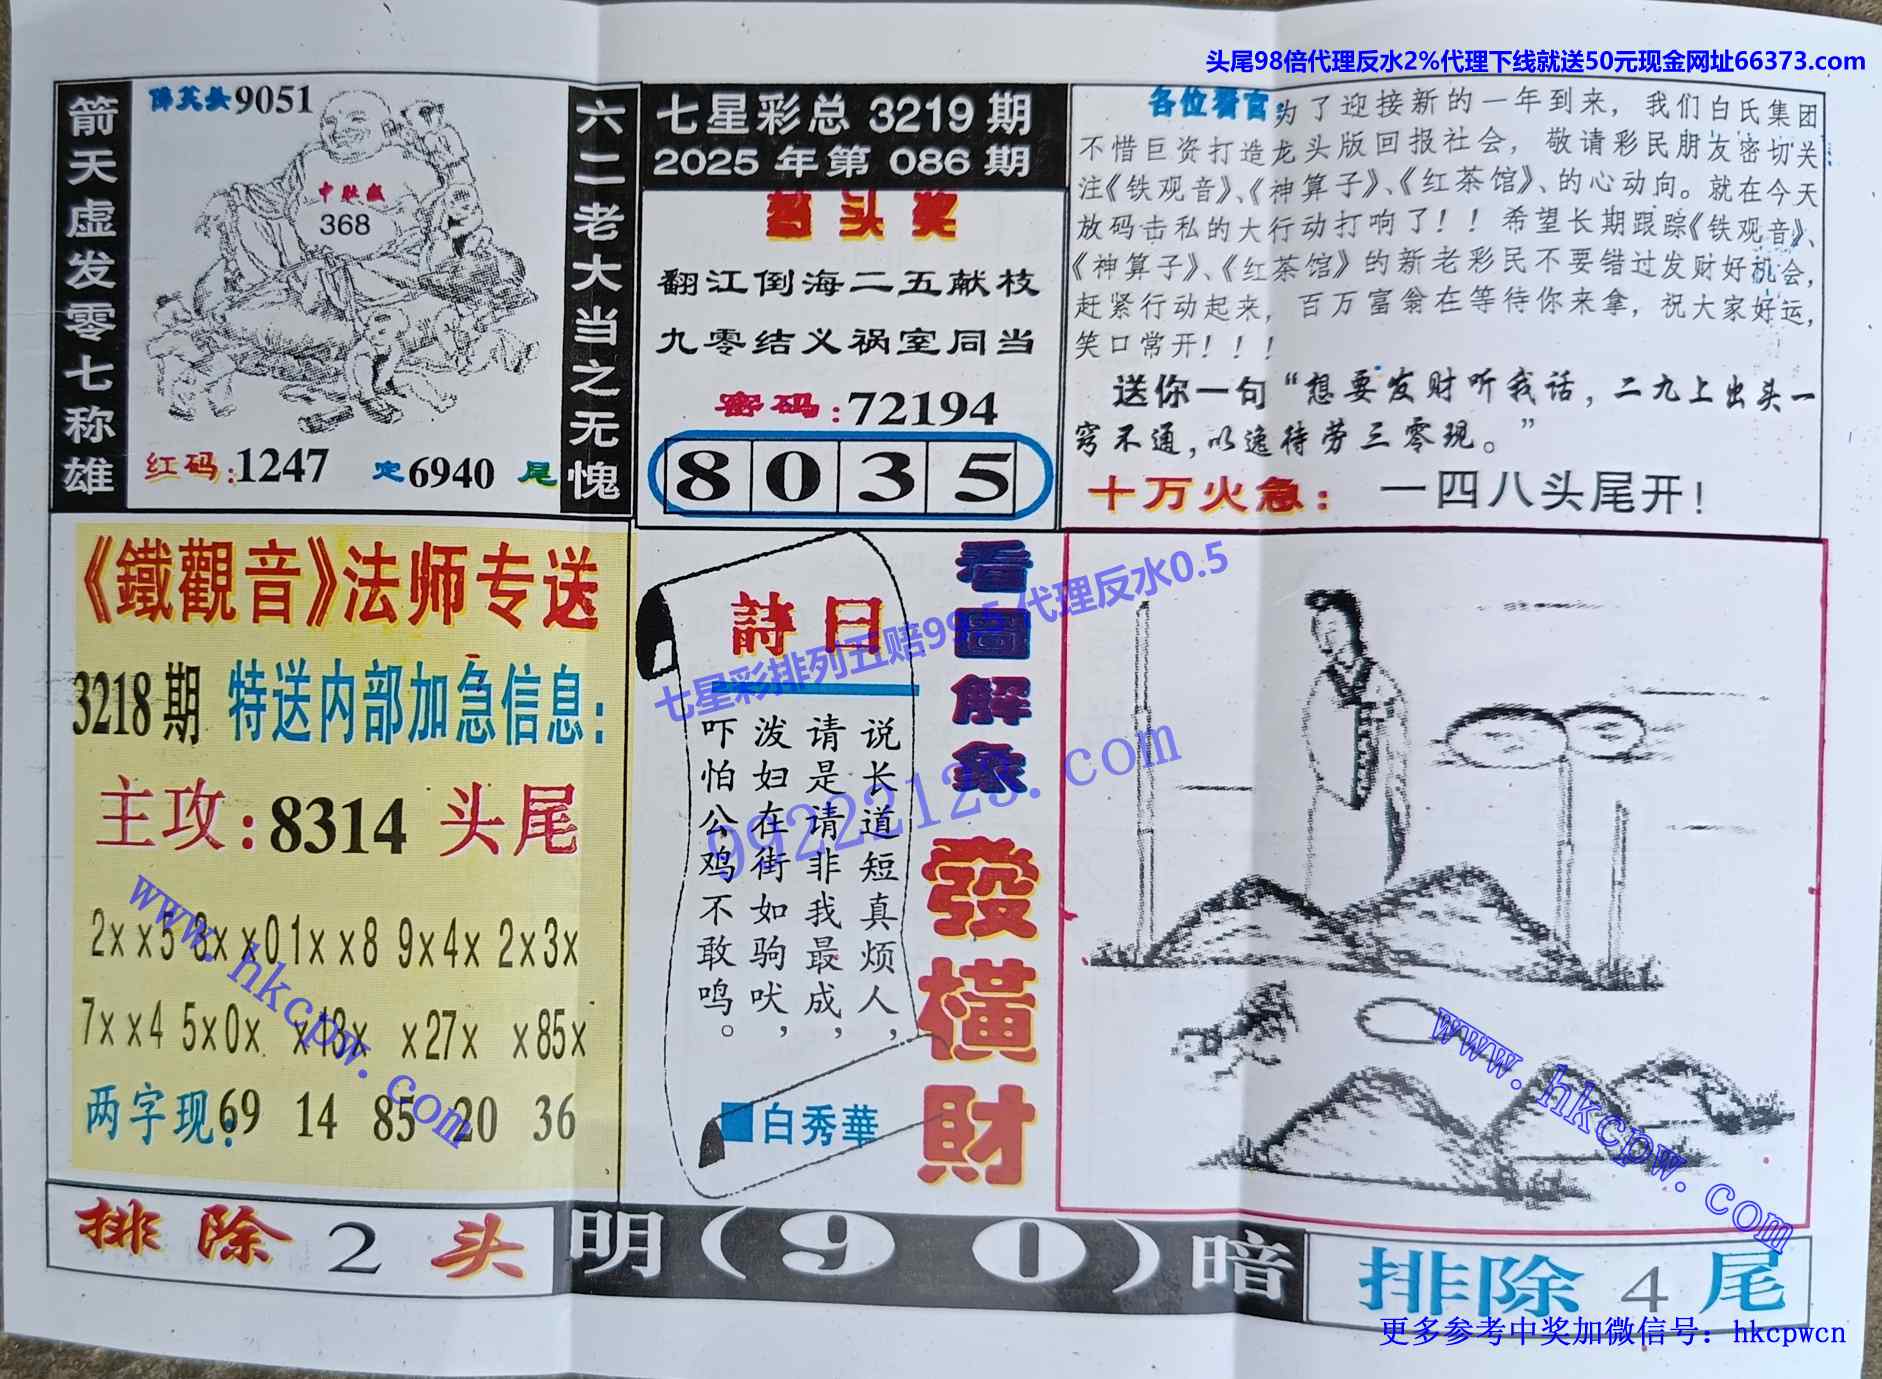 头尾98倍代理反水2%代理下线就送50元现金网址66373.com
箭天虚发零七称雄
9051
中肚藏
368
红码:1247 定6940 尾
六二老大当之无愧
七星彩总 3219 期
2025 年第 086 期
头奖
翻江倒海二五献枝
九零结义祸室同当
密码:72194
8 0 3 5
各位看官为了迎接新的一年到来，我们白氏集团
不惜巨资打造龙头版回报社会，敬请彩民朋友密切关
注《铁观音》、《神算子》、《红茶馆》、的心动向。就在今天
放码击私的大行动打响了！！希望长期跟踪《铁观音》、
《神算子》、《红茶馆》的新老彩民不要错过发财好机会，
赶紧行动起来，百万富翁在等待你来拿，祝大家好运，
笑口常开！！！
送你一句“想要发财听我话，二九上出头一
窍不通，以逸待劳三零现。”
十万火急：一四八头尾开！
《鐵觀音》法师专送
3218期 特送内部加急信息：
主攻：8314 头尾
2xx5 8xx0 1xx8 9x4x 2x3x
7xx4 5x0x x13x x27x x85x
两字现：69 14 85 20 36
詩曰
说长道短真烦人，
请是请非我最成，
泼妇在街如驹吠，
吓怕公鸡不敢鸣。
白秀華
看圖解象
發橫財
七星彩排列五赔99.5 代理反水0.5
99222123.com
www.hkcpw.com
www.hkcpw.com
排除 2 头
明(90)暗
排除 4 尾
更多参考中奖加微信号：hkcpwcn